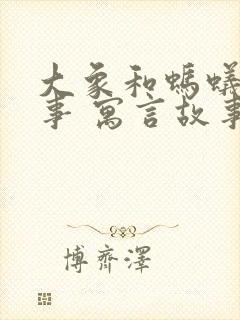 大象和螞蟻
事 寓言故事
博齊澤